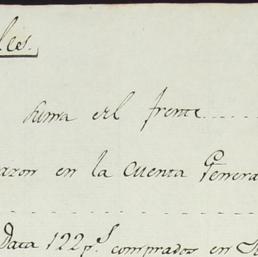 les.
suma del frente......
azon en la Cuenta Genera
Data 122 p.s comprados en